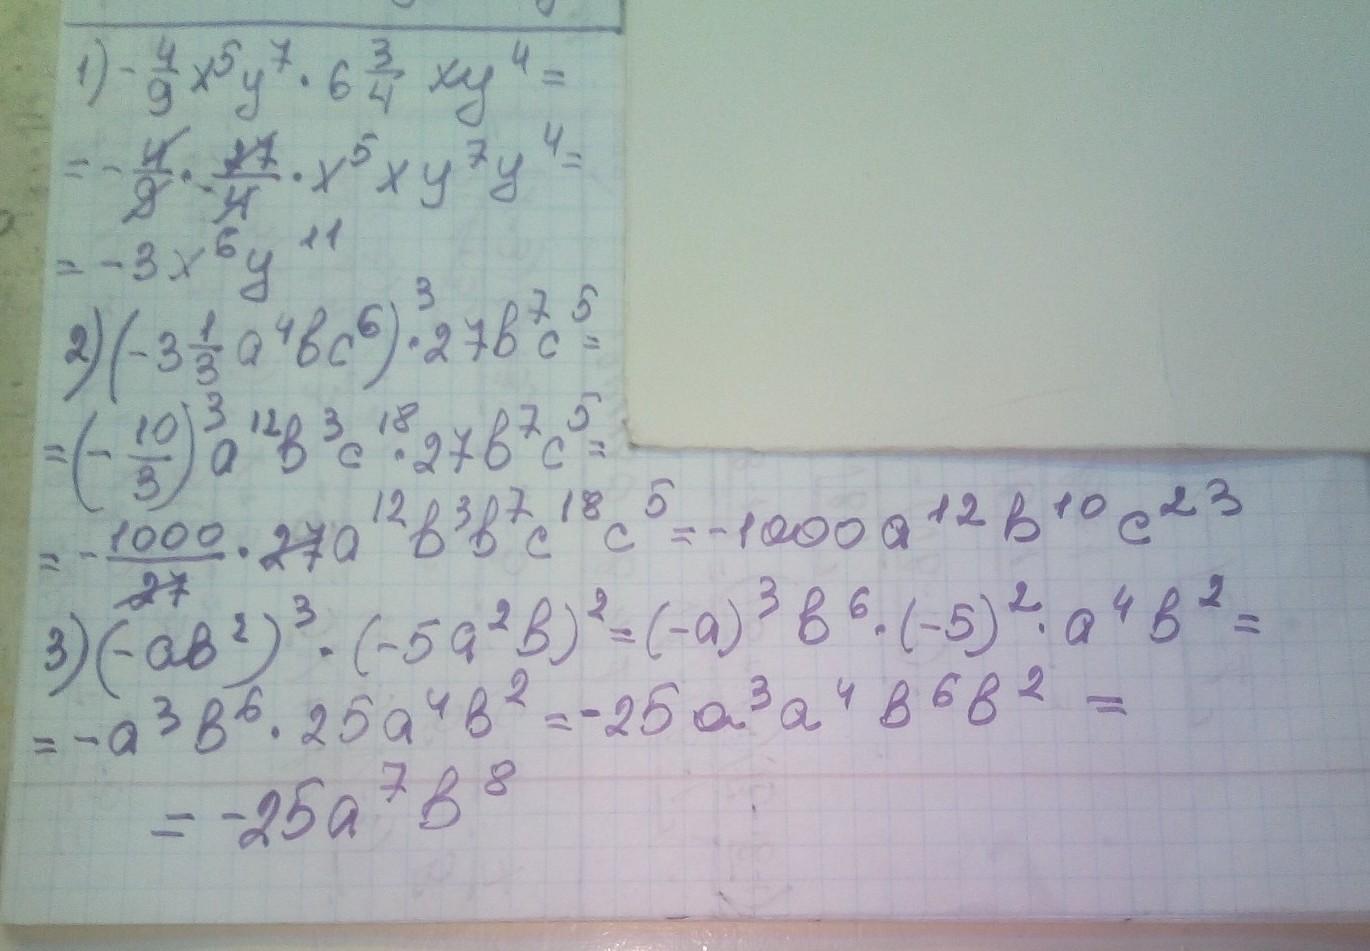 1) -4/9 x⁵y⁷ · 6 3/4 xy⁴ =
= -4/9 · 27/4 · x⁵xy⁷y⁴ =
= -3x⁶y¹¹
2) (-3 1/3 a⁴bc⁶)³ · 27b⁷c⁵ =
= (-10/3)³ a¹²b³c¹⁸ · 27b⁷c⁵ =
= -1000/27 · 27a¹²b³b⁷c¹⁸c⁵ = -1000a¹²b¹⁰c²³
3) (-ab²)³ · (-5a²b)² = (-a)³b⁶ · (-5)² · a⁴b² =
= -a³b⁶ · 25a⁴b² = -25a³a⁴b⁶b² =
= -25a⁷b⁸